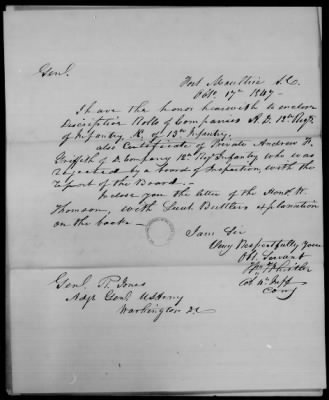 Fort Moultrie S.C.
Octo 17th 1847-
Genl.
I have the honor herewith to enclose
Descriptive Rolls of Companies A. D. 12th Regt
of Infantry, K. of 13th Infantry.
also Certificate of Private Andrew
Griffeth of D. Company 12th Regt Infantry who was
Rejected by a board of Inspection, with the
report of the Board.-
Inclose you the letter of the Honl. W.
Thomson, with Lieut Butlers explanation
on the back-
I am Sir
Very Respectfully Your
Obt. Servant
Col 4th Inft
Comg
Genl. R. Jones
Adjt Genl. US Army
Washington DC